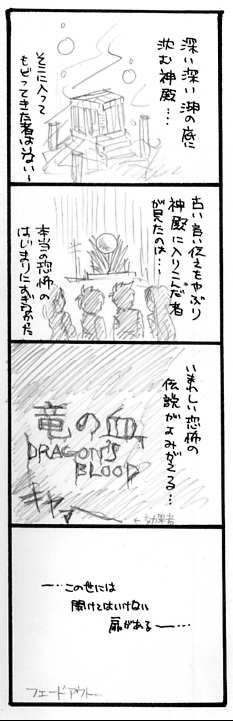 深い深い湖の底に
沈む神殿…
そこに入って
もどってきた者はない…
古い言い伝えをやぶり
神殿に入りこんだ者
が見たのは…
本当の恐怖の
はじまりにすぎなかった
いまわしい恐怖の
伝説がよみがえる…
竜の血
DRAGON'S
BLOOD
キャー
←効果音
―…この世には
開けてはいけない
扉がある―…
フェードアウト